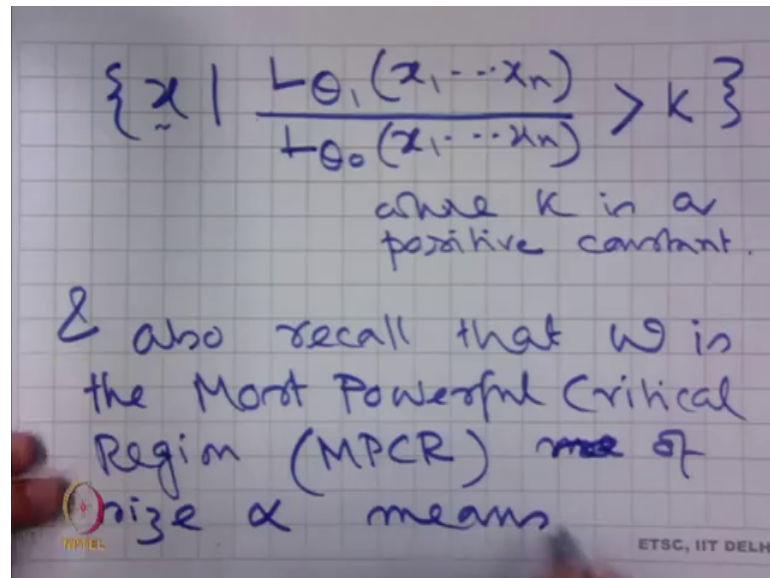 {x̰ | L_θ₁(x₁ --- xₙ) / L_θ₀(x₁ --- xₙ) > K}
where K is a
positive constant.
& also recall that ω is
the Most Powerful Critical
Region (MPCR) of
size α means
NPTEL
ETSC, IIT DELH